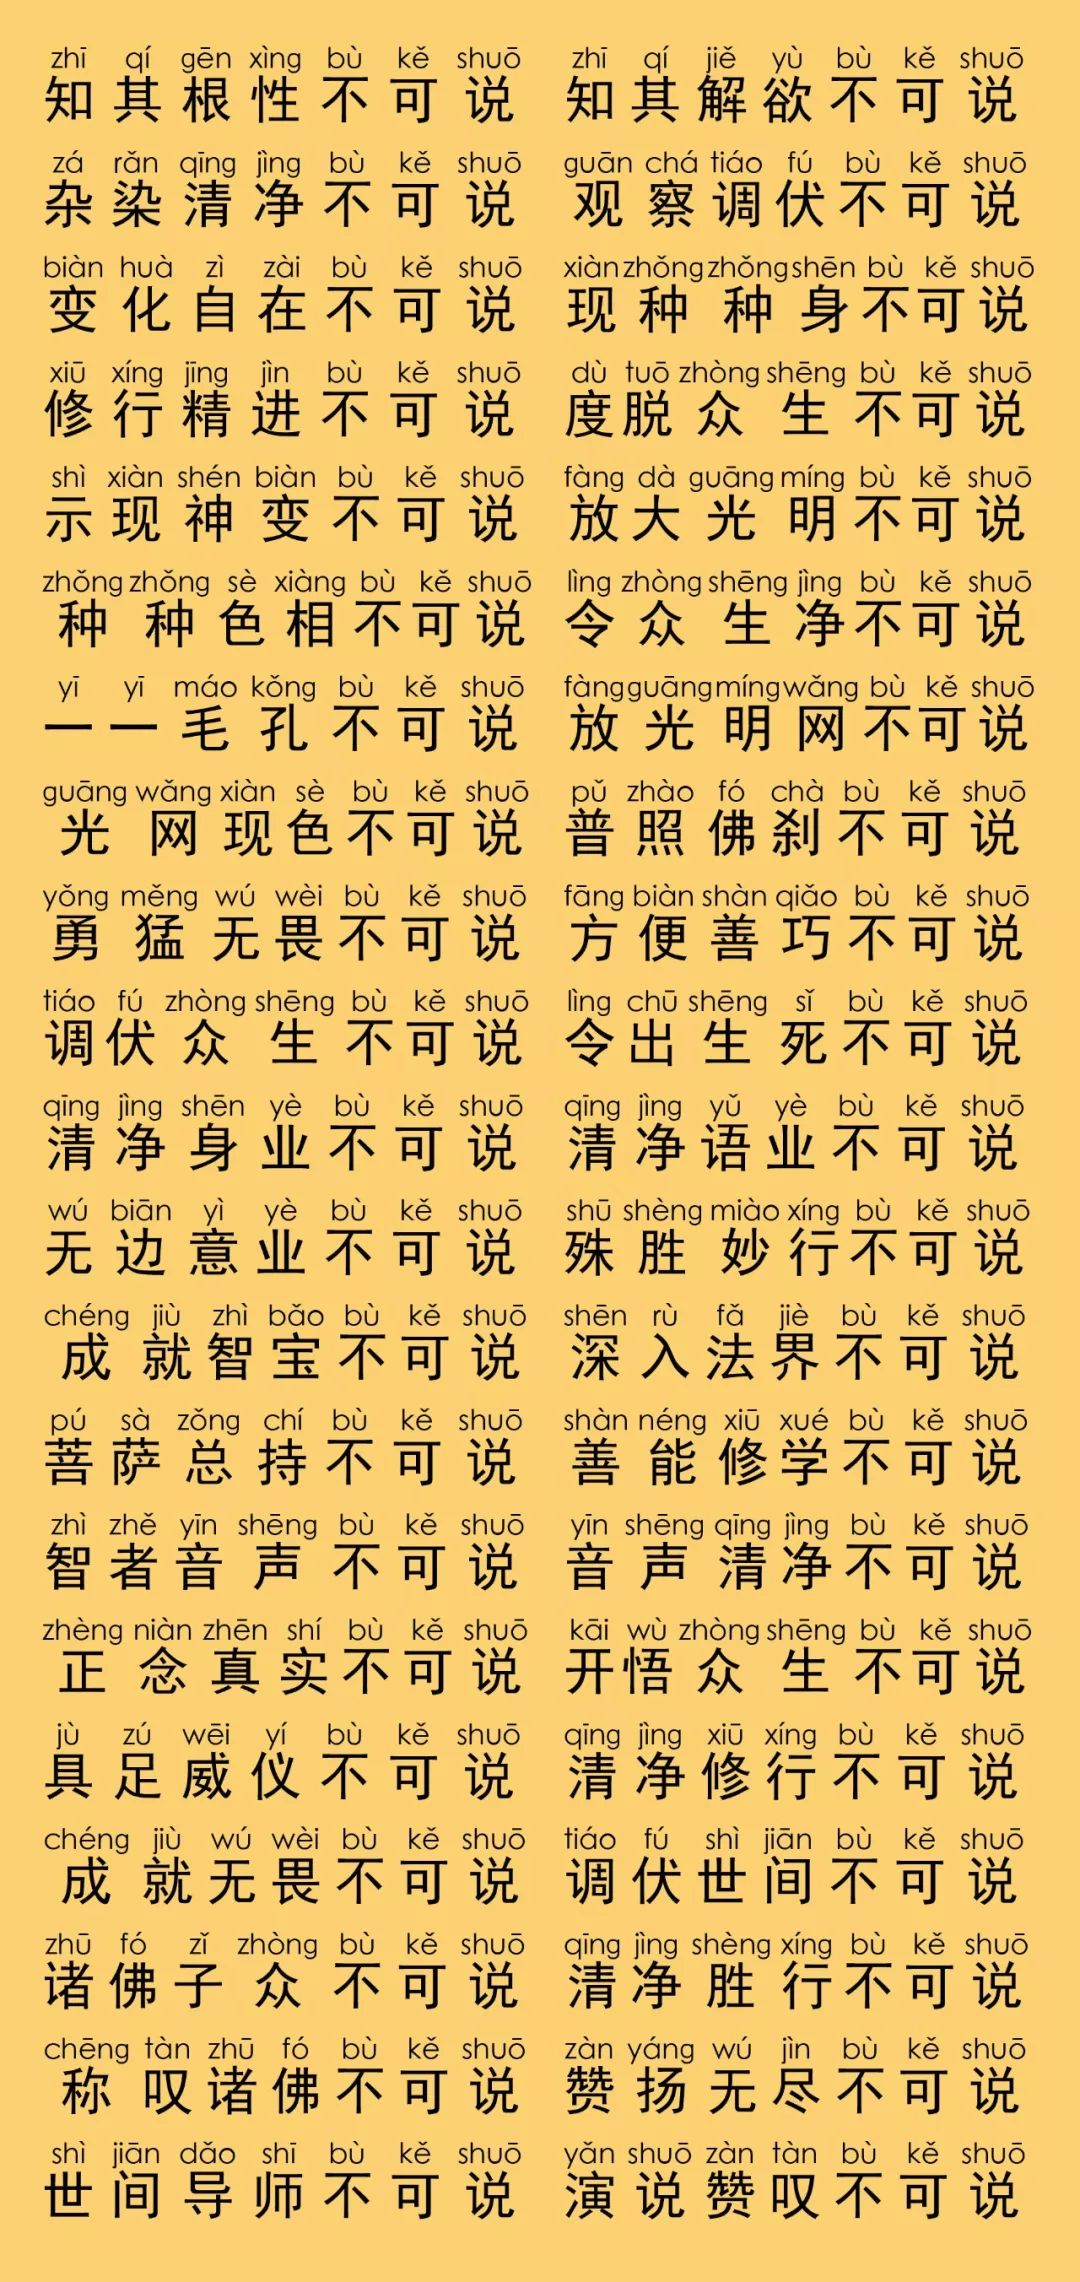 zhī qí gēn xìng bù kě shuō zhī qí jiě yù bù kě shuō
知其根性不可说 知其解欲不可说
zá rǎn qīng jìng bù kě shuō guān chá tiáo fú bù kě shuō
杂染清净不可说 观察调伏不可说
biàn huà zì zài bù kě shuō xiàn zhǒng zhǒng shēn bù kě shuō
变化自在不可说 现种种身不可说
xiū xíng jīng jìn bù kě shuō dù tuō zhòng shēng bù kě shuō
修行精进不可说 度脱众生不可说
shì xiàn shén biàn bù kě shuō fàng dà guāng míng bù kě shuō
示现神变不可说 放大光明不可说
zhǒng zhǒng sè xiàng bù kě shuō lìng zhòng shēng jìng bù kě shuō
种种色相不可说 令众生净不可说
yī yī máo kǒng bù kě shuō fàng guāng míng wǎng bù kě shuō
一一毛孔不可说 放光明网不可说
guāng wǎng xiàn sè bù kě shuō pǔ zhào fó chà bù kě shuō
光网现色不可说 普照佛刹不可说
yǒng měng wú wèi bù kě shuō fāng biàn shàn qiǎo bù kě shuō
勇猛无畏不可说 方便善巧不可说
tiáo fú zhòng shēng bù kě shuō lìng chū shēng sǐ bù kě shuō
调伏众生不可说 令出生死不可说
qīng jìng shēn yè bù kě shuō qīng jìng yǔ yè bù kě shuō
清净身业不可说 清净语业不可说
wú biān yì yè bù kě shuō shū shèng miào xíng bù kě shuō
无边意业不可说 殊胜妙行不可说
chéng jiù zhì bǎo bù kě shuō shēn rù fǎ jiè bù kě shuō
成就智宝不可说 深入法界不可说
pú sà zǒng chí bù kě shuō shàn néng xiū xué bù kě shuō
菩萨总持不可说 善能修学不可说
zhì zhě yīn shēng bù kě shuō yīn shēng qīng jìng bù kě shuō
智者音声不可说 音声清净不可说
zhèng niàn zhēn shí bù kě shuō kāi wù zhòng shēng bù kě shuō
正念真实不可说 开悟众生不可说
jù zú wēi yí bù kě shuō qīng jìng xiū xíng bù kě shuō
具足威仪不可说 清净修行不可说
chéng jiù wú wèi bù kě shuō tiáo fú shì jiān bù kě shuō
成就无畏不可说 调伏世间不可说
zhū fó zǐ zhòng bù kě shuō qīng jìng shèng xíng bù kě shuō
诸佛子众不可说 清净胜行不可说
chēng tàn zhū fó bù kě shuō zàn yáng wú jìn bù kě shuō
称叹诸佛不可说 赞扬无尽不可说
shì jiān dǎo shī bù kě shuō yǎn shuō zàn tàn bù kě shuō
世间导师不可说 演说赞叹不可说